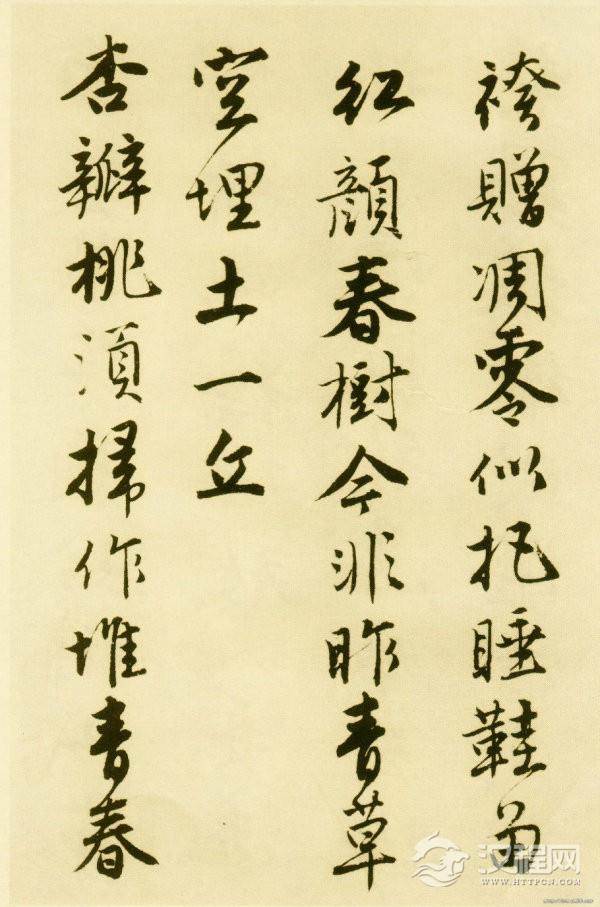 袴贈凋零似把睡鞋留
紅顏春樹今非昨青草
空埋土一丘
杏瓣桃須掃作堆青春
汉程网
WWW.HTTPCN.COM